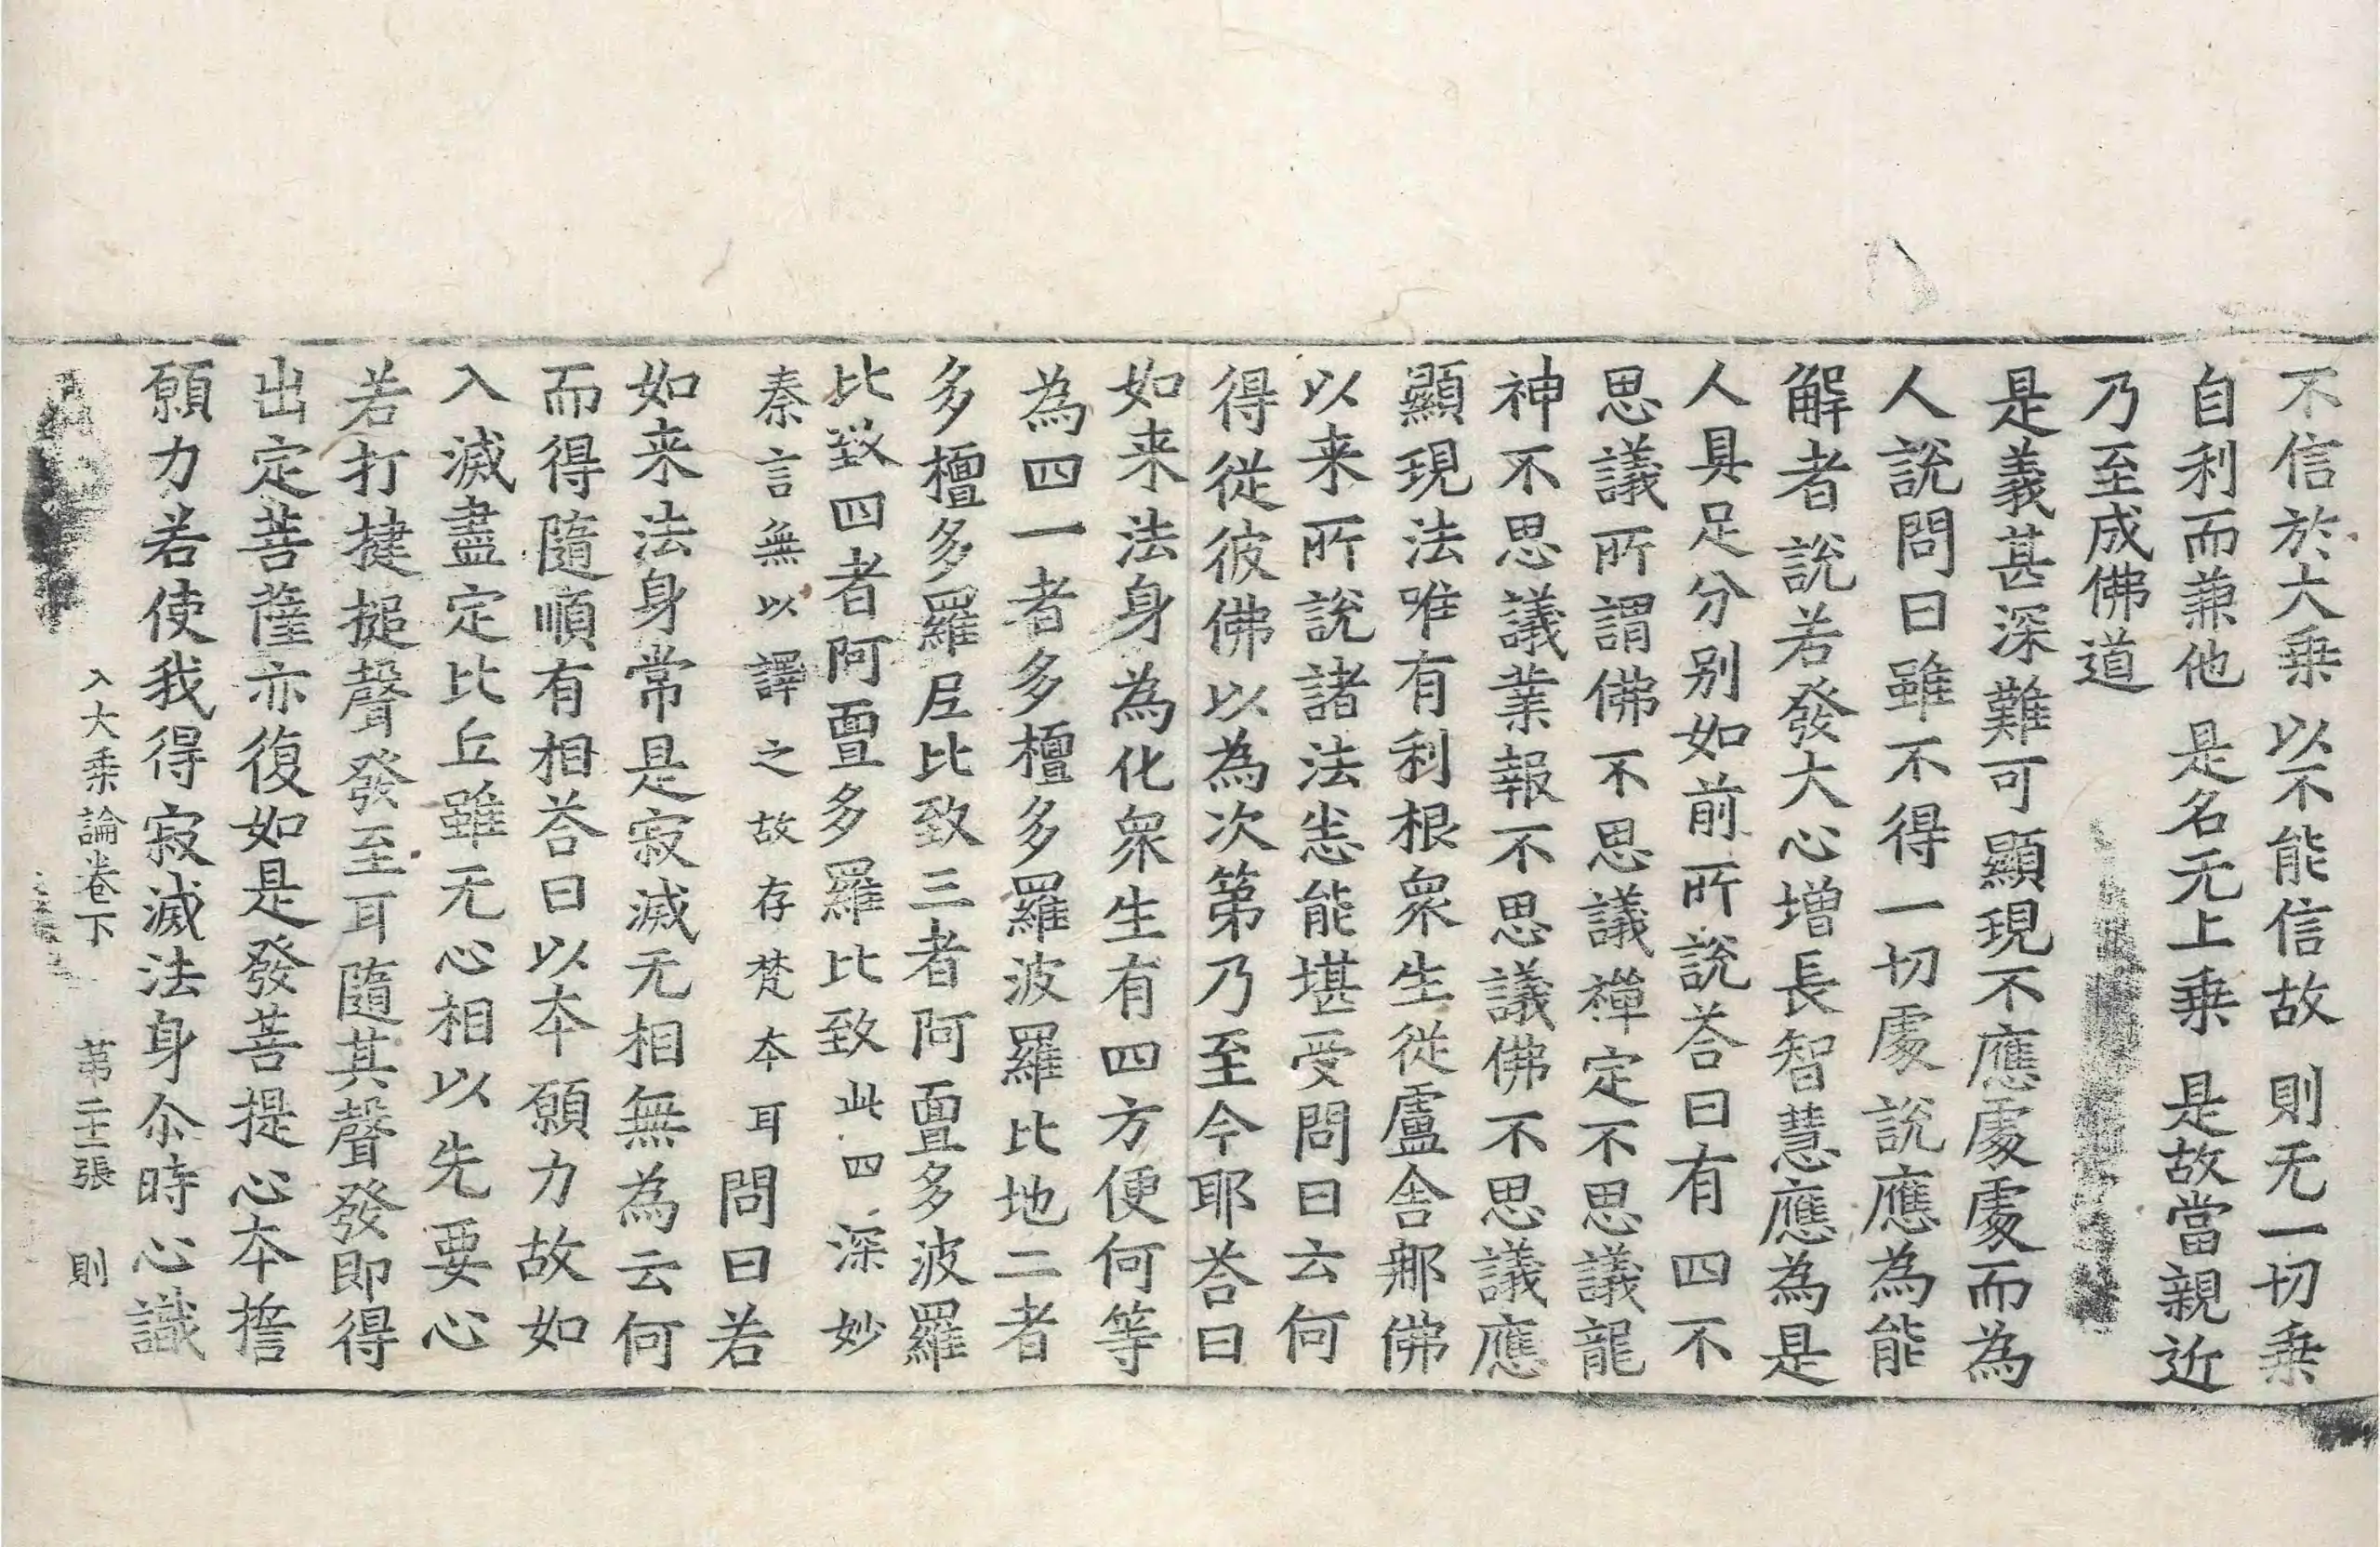 不信於大乗以不能信故則无一切乗
自利而兼他是名无上乗是故當親近
乃至成佛道
是義甚深難可顯現不應處處而為
人說問曰雖不得一切處說應為能
解者說若發大心增長智慧應為是
人具足分别如前所說荅曰有四不
思議所謂佛不思議禪定不思議龍
神不思議業報不思議佛不思議應
顯現法唯有利根衆生從盧舎那佛
以来所說諸法恙能堪受問曰云何
得從彼佛以為次第乃至今耶荅曰
如来法身為化衆生有四方便何等
為四一者多檀多羅波羅比地二者
多檀多羅𡰱比致三者阿亶多波羅
比致四者阿亶多羅比致此四深妙
秦言無以譯之故存梵本耳問曰若
如来法身常是寂滅无相無為云何
而得隨順有相荅曰以本願力故如
入滅盡定比丘雖无心相以先要心
若打揵搥聲發至耳隨其聲發即得
出定菩薩亦復如是發菩提心本擔
願力若使我得寂滅法身尒時心識
入大乗論卷下 苐二十二張 則